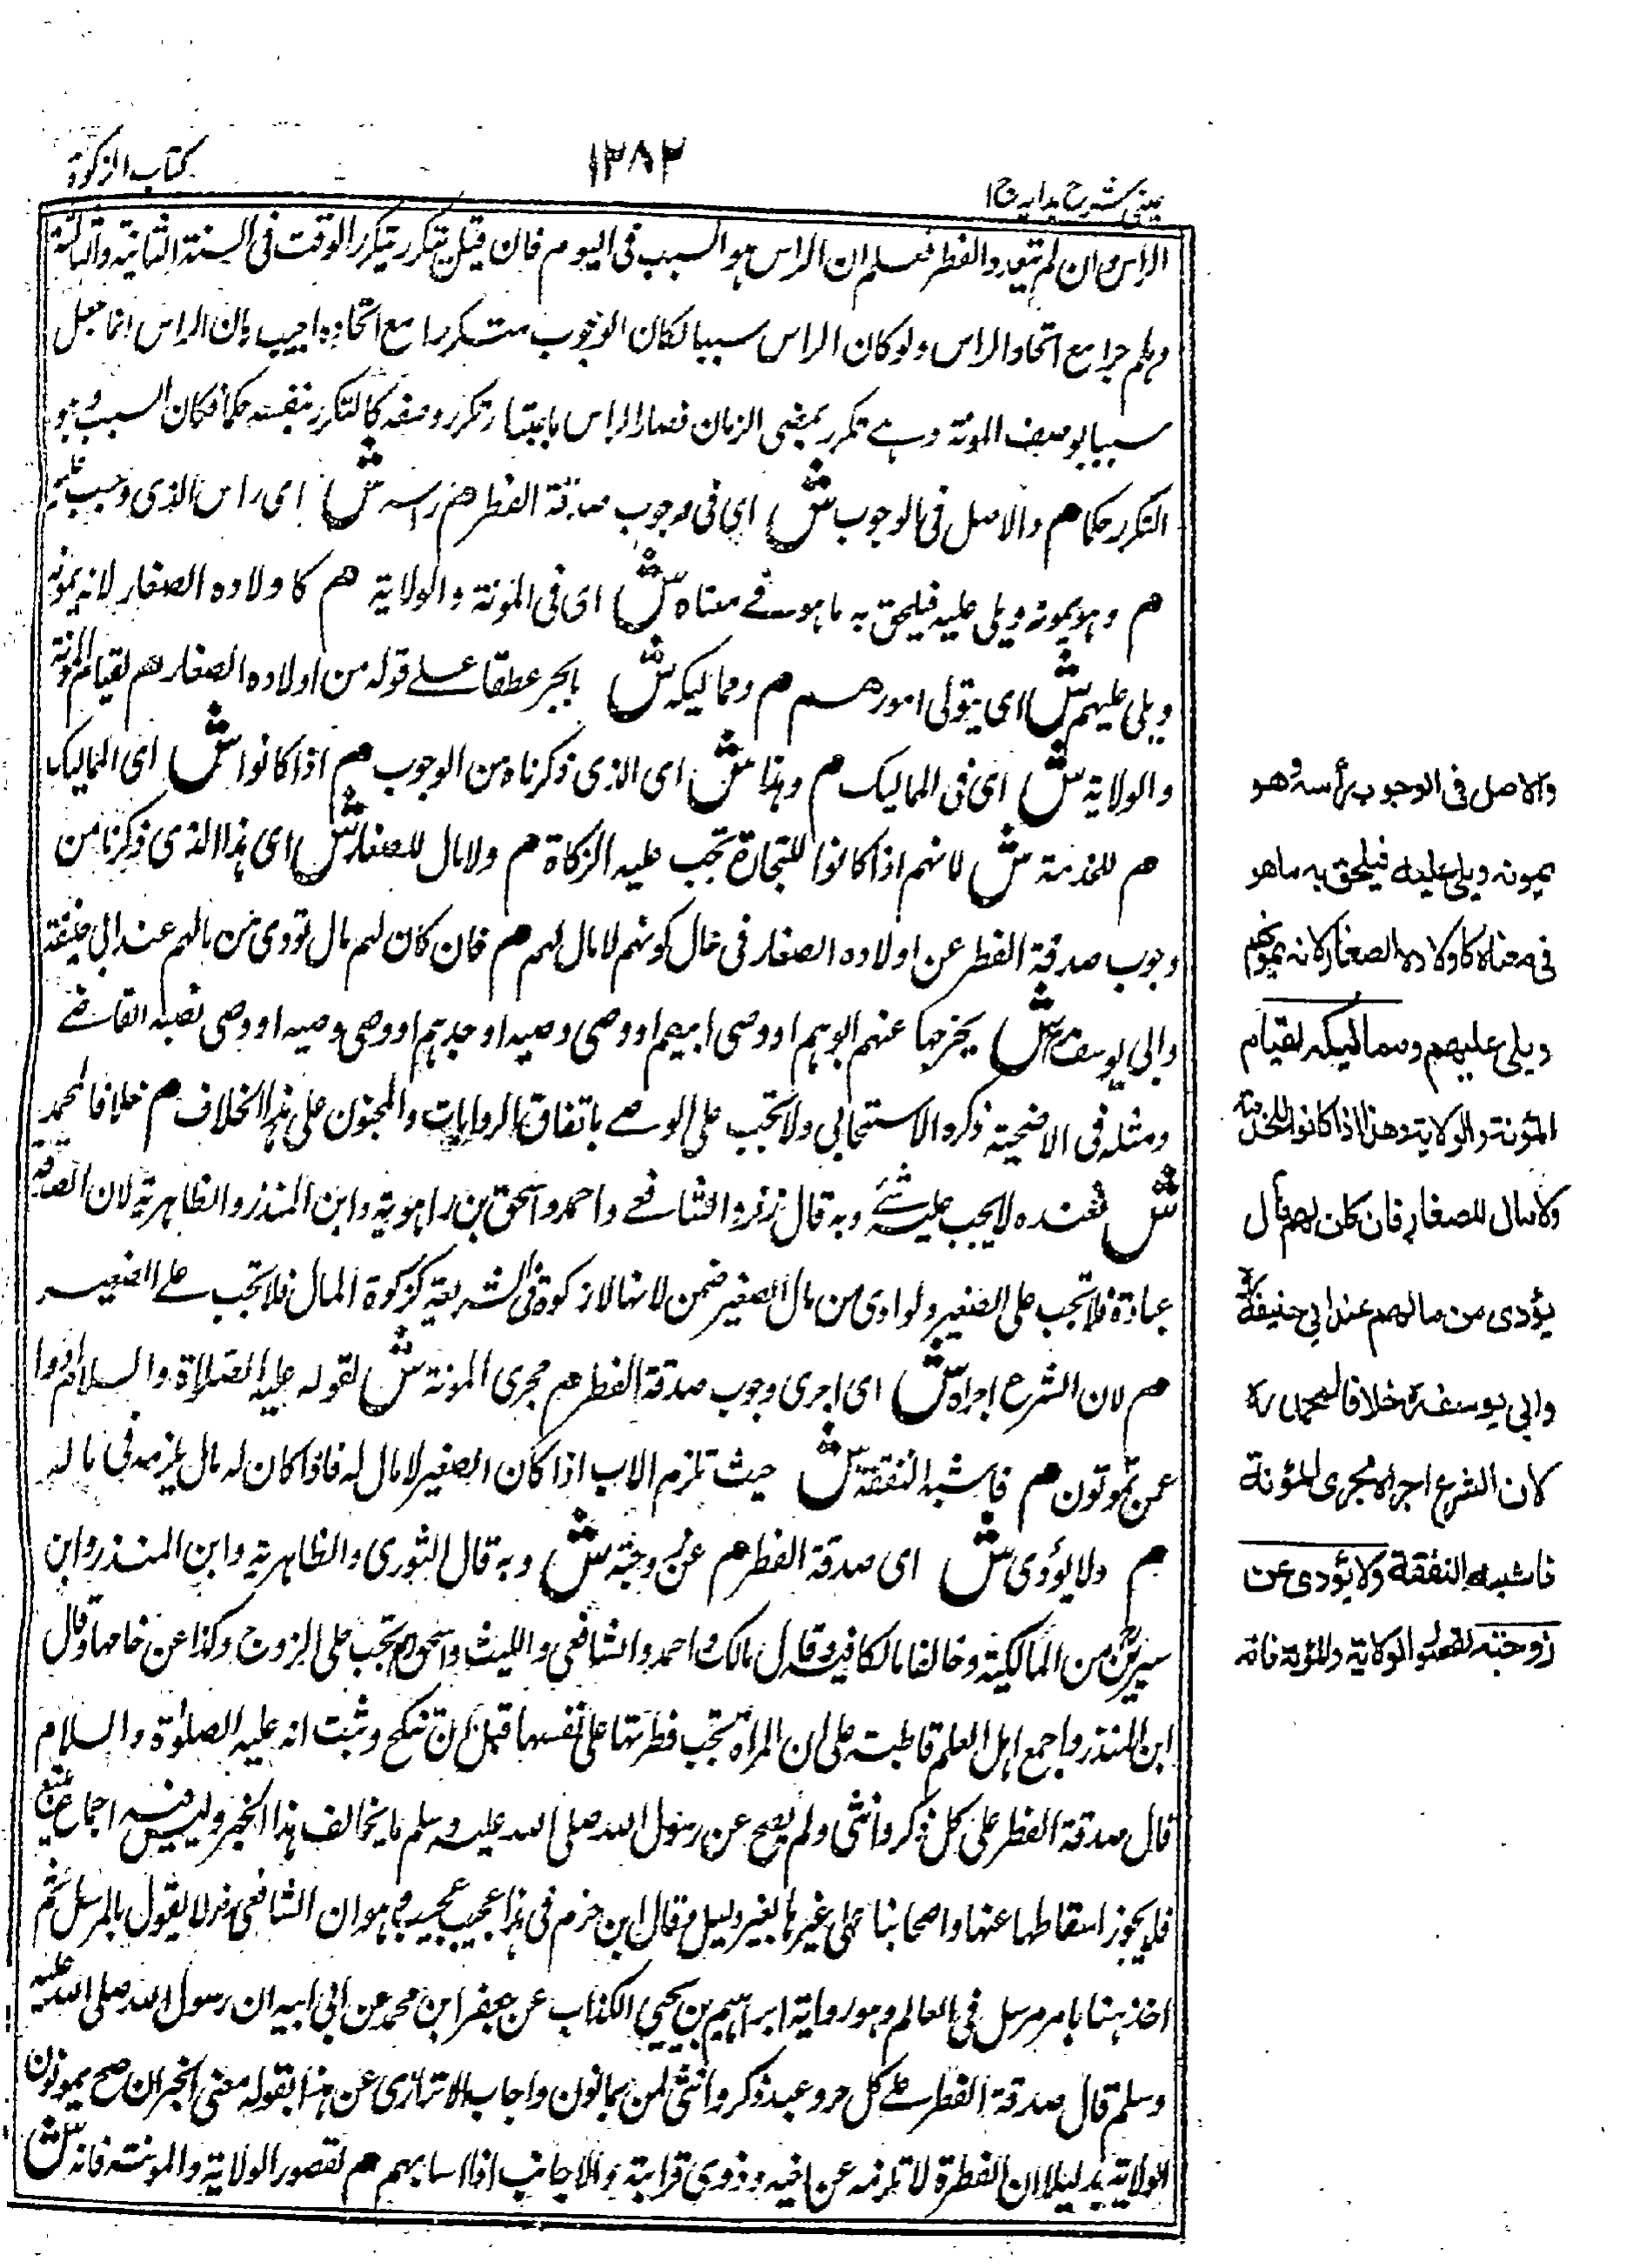 عينى شرح هدايه ج١
١٣٨٢
كتاب الزكوة
الراس وان لم يتعدد الفطر فعلم ان الراس هو السبب فى اليوم فان قيل يتكرر بتكرر الوقت فى السنة الثانية والثالثة
وهلم جرا مع اتحاد الراس ولو كان الراس سببا لكان الوجوب متكررا مع اتحاده اجيب بان الراس انما جعل
سببا بوصف المونة وهى تكرر بمضى الزمان فصار الراس باعتبار تكرر وصفه كالتكرر بنفسه حكما فكان السبب هو
التكرر حكما م والاصل فى الوجوب ش اى فى وجوب صدقة الفطر هم راسه ش اى راس الذى وجبت عليه
م وهو يمونه ويلى عليه فيلحق به ما هو فى معناه ش اى فى المؤنة والولاية م كاولاده الصغار لانه يمونهم
ويلى عليهم ش اى يتولى امورهم م ومماليكه ش بالجر عطفا على قوله من اولاده الصغار هم لقيام المؤنة
والولاية ش اى فى المماليك م وهذا ش اى الذى ذكرناه من الوجوب م اذا كانوا ش اى المماليك
م للخدمة ش لانهم اذا كانوا للتجارة تجب عليه الزكاة م ولا مال للصغار ش اى هذا الذى ذكرنا من
وجوب صدقة الفطر عن اولاده الصغار فى حال كونهم لا مال لهم م فان كان لهم مال تودى من مالهم عند ابى حنيفة
وابى يوسف ش يخرجها عنهم ابوهم او وصى ابيهم او وصى وصيه او جدهم او وصى وصيه او وصى نصبه القاضى
ومثله فى الاضحية ذكره الاسبيجابى ولا تجب على الوصى باتفاق الروايات والمجنون على هذا الخلاف م خلافا لمحمد
ش فعنده لا يجب عليه شئ وبه قال زفر والشافعى واحمد واسحق بن راهويه وابن المنذر والظاهرية لان الصدقة
عبادة فلا تجب على الصغير ولو ادى من مال الصغير ضمن لانها لا زكوة فى الشريعة كزكوة المال فلا تجب على الصغير
م لان الشرع اجراه ش اى اجرى وجوب صدقة الفطر م مجرى المونة ش لقوله عليه الصلاة والسلام ادوا
عمن تمونون م فاشبه النفقة ش حيث تلزم الاب اذا كان الصغير لا مال له فاذا كان له مال يلزمه فى ماله
م ولا يؤدى ش اى صدقة الفطر م عن زوجته ش وبه قال الثورى والظاهرية وابن المنذر وابن
سيرين من المالكية وخالفا مالكا فيه وقال مالك واحمد والشافعى والليث واسحق تجب على الزوج وكذا عن خادمها وقال
ابن المنذر واجمع اهل العلم قاطبة على ان المراة تجب فطرتها على نفسها قبل ان تنكح وثبت انه عليه الصلوة والسلام
قال صدقة الفطر على كل ذكر وانثى ولم يصح عن رسول الله صلى الله عليه وسلم ما يخالف هذا الخبر وليس فيه اجماع
فلا يجوز اسقاطها عنها وايجابها على غيرها بغير دليل وقال ابن حزم فى هذا عجب عجيب وهو ان الشافعى لا يقول بالمرسل ثم
اخذ هنا بامر مرسل فى العالم وهو رواية ابراهيم بن يحيى الكذاب عن جعفر ابن محمد عن ابيه ان رسول الله صلى الله عليه
وسلم قال صدقة الفطر على كل حر وعبد ذكر وانثى ممن يمانون واجاب الاترازى عن هذا بقوله معنى الخبر ان صح يمونون
الولاية بدليل ان الفطرة لا تلزمه عن اخيه وذوى قرابة والاجانب اذا م لقصور الولاية والمونة فانه ش
والاصل فى الوجوب رأسه وهو
يمونه ويلى عليه فيلحق به ما هو
فى معناه كاولاده الصغار لانه يمونهم
ويلى عليهم ومماليكه لقيام
المؤنة والولاية وهذا اذا كانوا للخدمة
ولا مال للصغار فان كان لهم مال
يؤدى من مالهم عند ابى حنيفة
وابى يوسف خلافا لمحمد
لان الشرع اجراه مجرى المؤنة
فاشبه النفقة ولا يؤدى عن
زوجته لقصور الولاية والمؤنة فانه